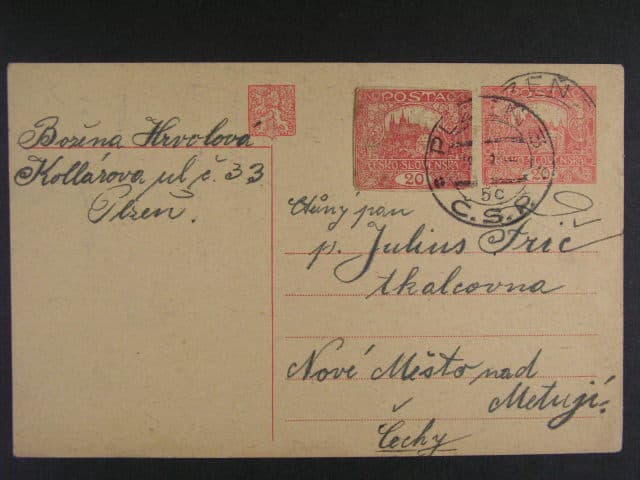 Božena Hrvolová
Kollárova ul č. 33
Plzeň.
POŠTA
ČESKO-SLOVENSKÁ
20
20
PLZEŇ 3
5c
Č.S.R.
Ctěný pan
p. Julius Frič
tkalcovna
Nové Město nad
Metují.
Čechy